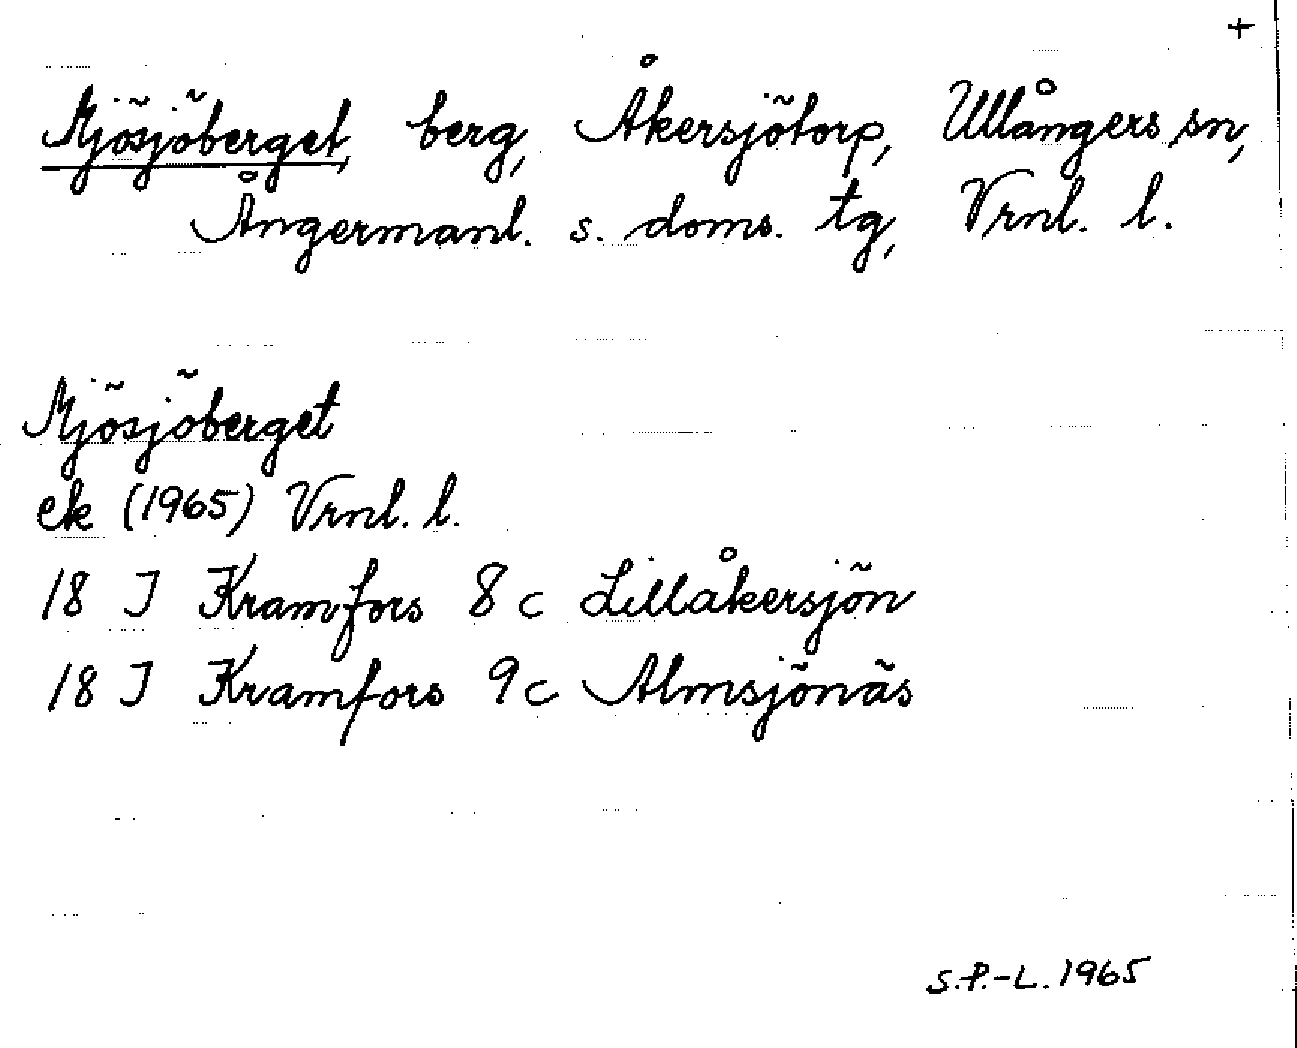 +
Mjösjöberget, berg, Åkersjötorp, Ullångers sn,
Ångermanl. s. doms. tg, Vrnl. l.
Mjösjöberget
ek (1965) Vrnl. l.
18 J Kramfors 8 c Lillåkersjön
18 J Kramfors 9 c Almsjönäs
S.P.-L. 1965